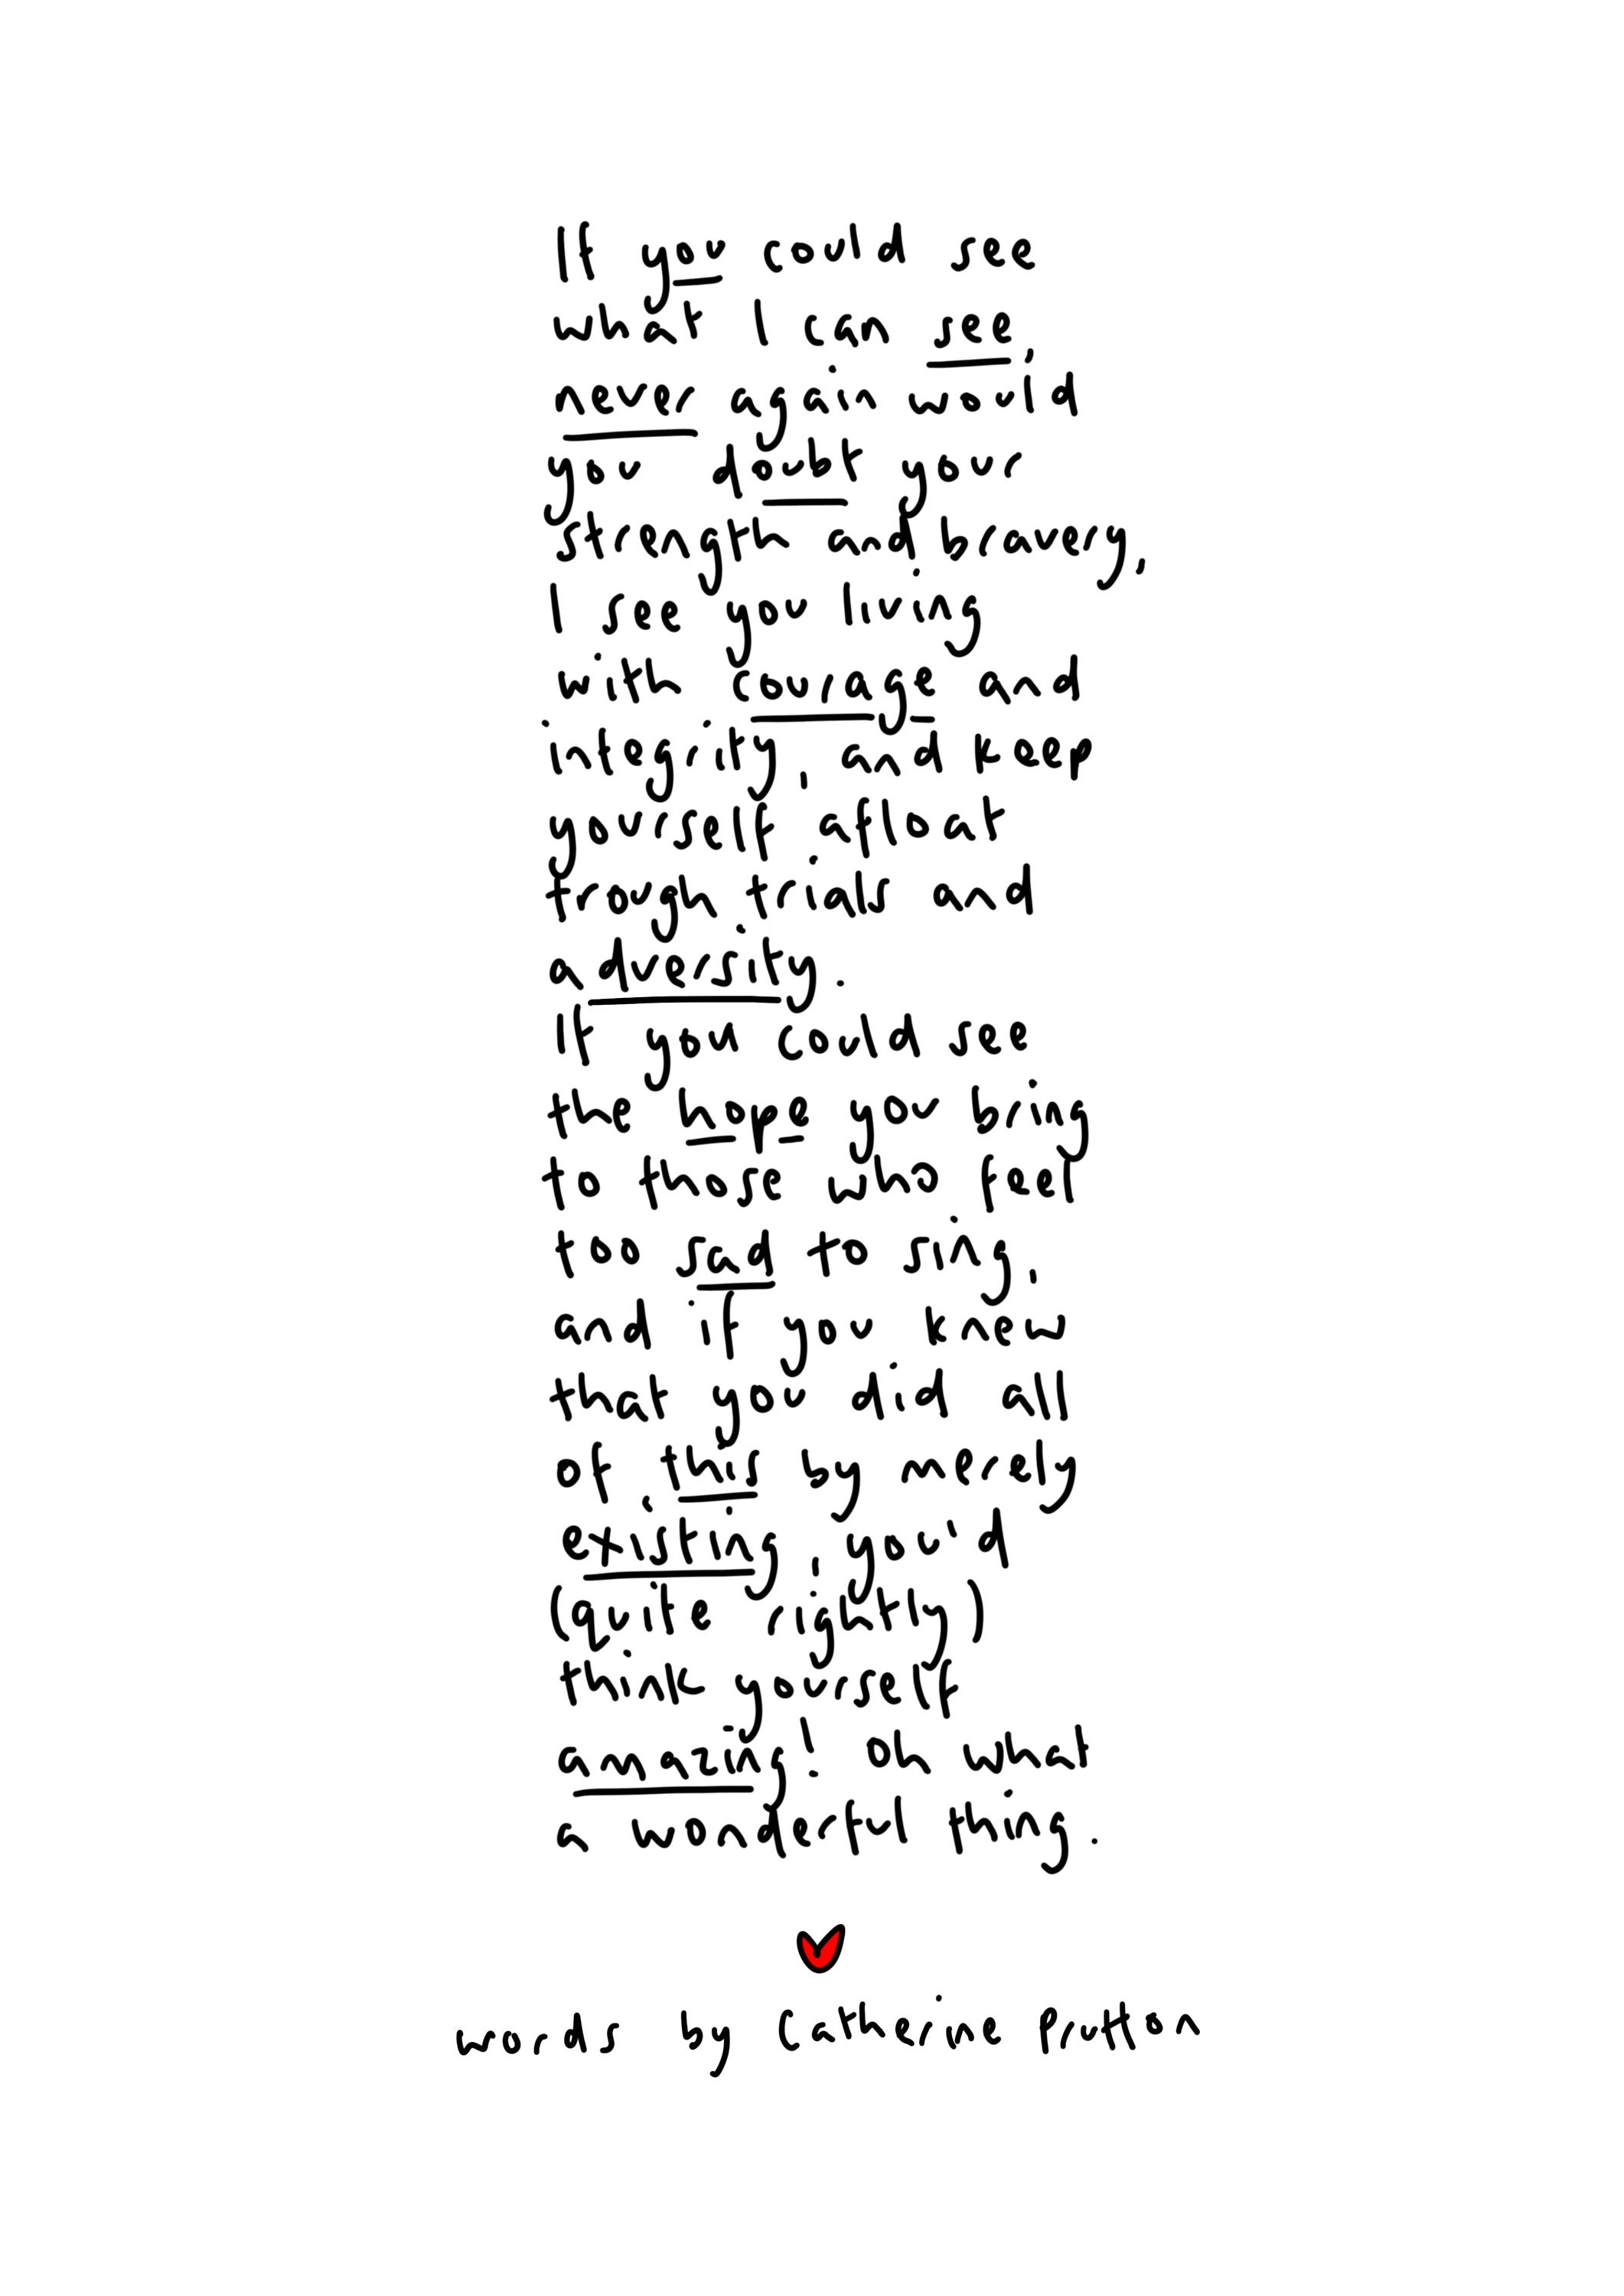 If you could see
what I can see,
never again would
you doubt your
strength and bravery,
I see you living
with courage and
integrity, and keep
yourself afloat
trough trials and
adversity.
If you could see
the hope you bring
to those who feel
too sad to sing,
and if you knew
that you did all
of this by merely
existing, you'd
(quite rightly)
think yourself
amazing! Oh what
a wonderful thing.
words by Catherine Prutton